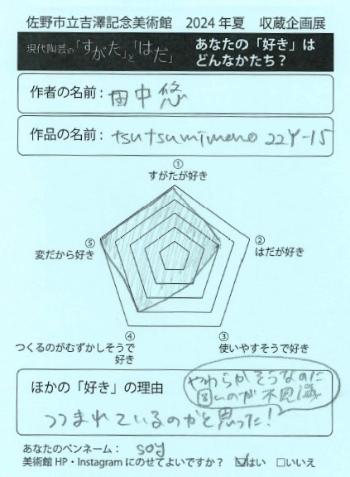 佐野市立吉澤記念美術館　2024年夏　収蔵企画展
現代陶芸の「すがた」と「はだ」　あなたの「好き」は
どんなかたち？
作者の名前：田中悠
作品の名前：tsutsumimono 22Y-15
①
すがたが好き
⑤
変だから好き
②
はだが好き
④
つくるのがむずかしそうで
好き
③
使いやすそうで好き
ほかの「好き」の理由
やわらかそうなのに
固いのが不思議
つつまれているのかと思った！
あなたのペンネーム：soy
美術館HP・Instagramにのせてよいですか？　☑はい　□いいえ